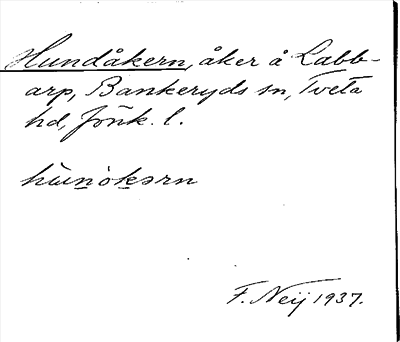 Hundåkern, åker å Labb-
arp, Bankeryds sn, Tveta
hd, Jönk. l.
hùnòkərn
F. Neij 1937.